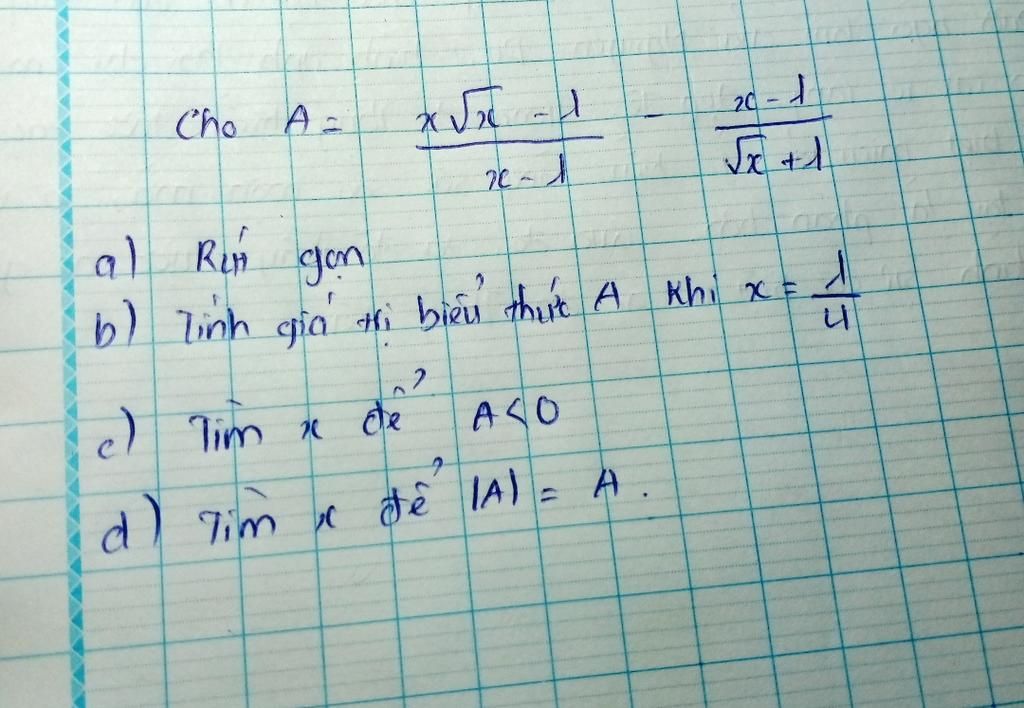 Cho A = \frac{x\sqrt{x} - 1}{x - 1} - \frac{x - 1}{\sqrt{x} + 1}
a) Rút gọn
b) Tính giá trị biểu thức A khi x = \frac{1}{4}
c) Tìm x để A < 0
d) Tìm x để |A| = A.